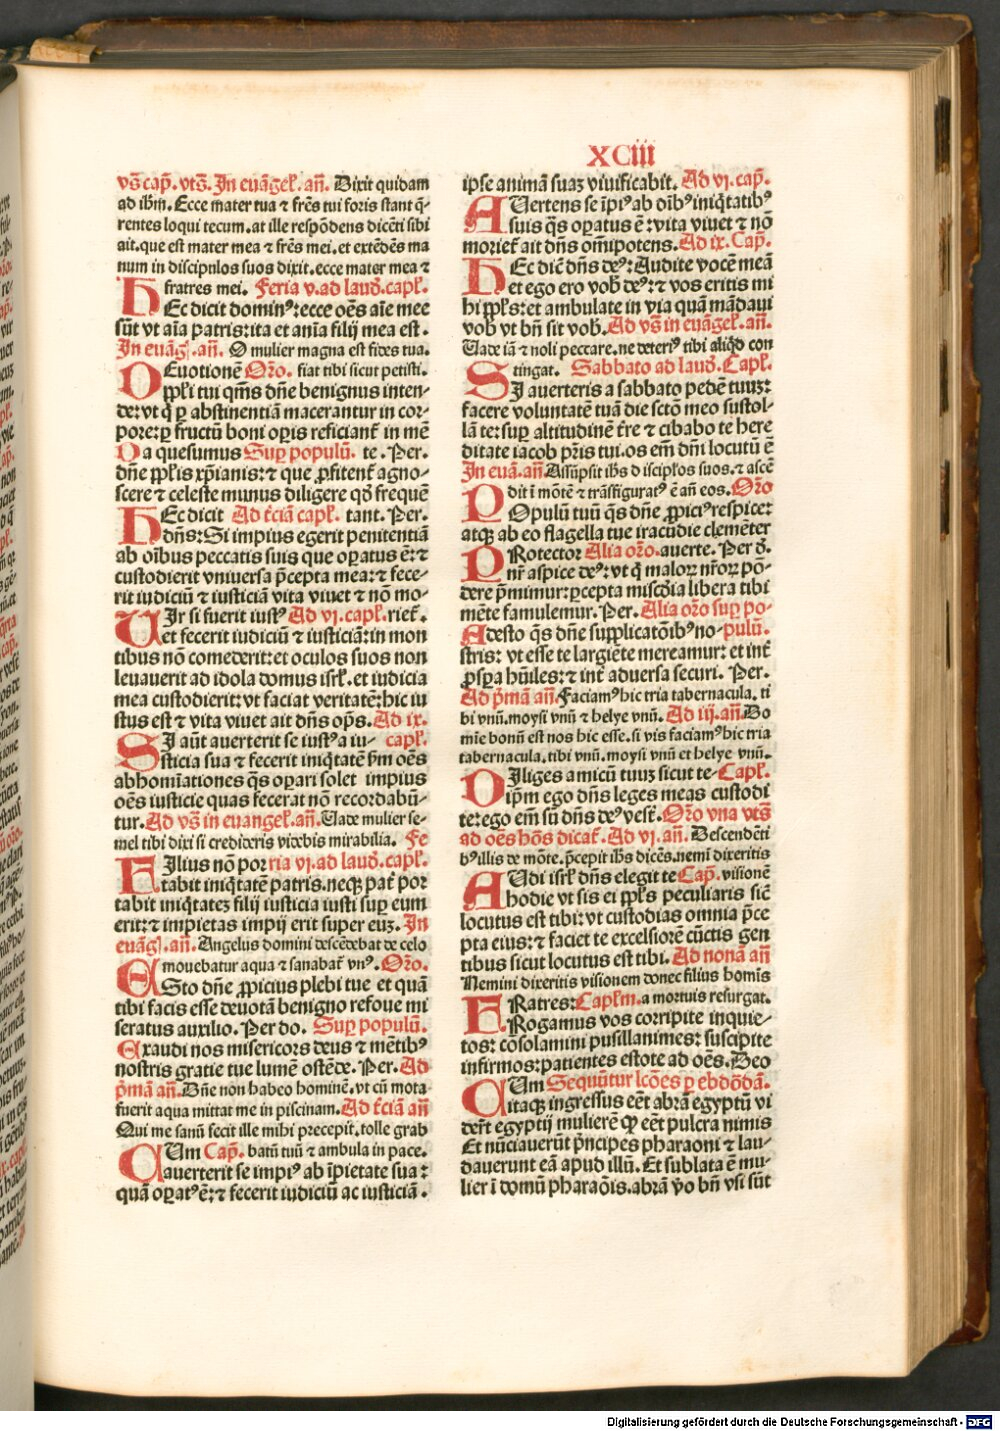 XCiii
vs̄ cap̄. vts̄. In euāgeł. an̄. Dixit quidam
ad ihm̄. Ecce mater tua ⁊ fr̄es tui foris stant q̄-
rentes loqui tecum. at ille respōdens dicēti sibi
ait. que est mater mea ⁊ fr̄es mei. et extēdēs ma
num in discipulos suos dixit. ecce mater mea ⁊
fratres mei. Feria v. ad laud̄. capł.
HEc dicit dominꝰ: ecce oēs aīe mee
sūt vt aīa patris: ita et anīa filij mea est.
In euāgl̄. an̄. O mulier magna est fides tua.
DEuotionē Or̄o. fiat tibi sicut petisti.
pp̄łi tui qm̄s dn̄e benignus inten-
de: vt q̄ ꝑ abstinentiā macerantur in cor-
pore: ꝑ fructū boni oꝑis reficiant̄ in mē
Da quesumus Suꝑ populū. te. Per.
dn̄e pp̄łis xp̄ianis: ⁊ que ꝓfitent̄ agno-
scere ⁊ celeste munus diligere qd̄ frequē
HEc dicit Ad t̄ciā capł. tant. Per.
dn̄s: Si impius egerit penitentiā
ab oībus peccatis suis que oꝑatus ē: ⁊
custodierit vniuersa p̄cepta mea: ⁊ fece-
rit iudiciū ⁊ iusticiā vita viuet ⁊ nō mo-
UIr si fuerit iustꝰ Ad vj. capł. riet̄.
et fecerit iudiciū ⁊ iusticiā: in mon
tibus nō comederit: et oculos suos non
leuauerit ad idola domus isrł. et iudicia
mea custodierit: vt faciat veritatē: hic iu
stus est ⁊ vita viuet ait dn̄s op̄s. Ad ix.
SI aūt auerterit se iustꝰ a iu- capł.
sticia sua ⁊ fecerit iniq̄tatē ẜm oēs
abhomīationes q̄s oꝑari solet impius
oēs iusticie quas fecerat nō recordabū-
tur. Ad vs̄ in euangeł. an̄. Uade mulier se-
mel tibi dixi si credideris videbis mirabilia. Fe
FIlius nō por ria vj. ad laud̄. capł.
tabit iniq̄tatē patris. necꝫ pat̄ por
tabit iniq̄tateʒ filij iusticia iusti suꝑ eum
erit: ⁊ impietas impij erit super euʒ. In
euāgl̄. an̄. Angelus domini descēdebat de celo
⁊ mouebatur aqua ⁊ sanabat̄ vnꝰ. Or̄o.
ESto dn̄e ꝓpicius plebi tue et quā
tibi facis esse deuotā benigno refoue mi
seratus auxilio. Per do. Suꝑ populū.
Exaudi nos misericors deus ⁊ mētibꝰ
nostris gratie tue lumē ostēde. Per. Ad
p̄mā an̄. Dn̄e non habeo hominē. vt cū mota
fuerit aqua mittat me in piscinam. Ad t̄ciā an̄
Qui me sanū fecit ille mihi precepit. tolle grab
CUm Cap̄. batū tuū ⁊ ambula in pace.
auerterit se impiꝰ ab īpietate sua:
quā oꝑatꝰ ē: ⁊ fecerit iudiciū ac iusticiā.
ipse animā suaʒ viuificabit. Ad vj. cap̄.
AUertens se īpiꝰ ab oībꝰ iniq̄tatibꝰ
suis q̄s oꝑatus ē: vita viuet ⁊ nō
moriet̄ ait dn̄s om̄ipotens. Ad ix. Cap̄.
HEc diē dn̄s deꝰ: Audite vocē meā
et ego ero vob̄ deꝰ: ⁊ vos eritis mi
hi pp̄łs: et ambulate in via quā mādaui
vob̄ vt bn̄ sit vob̄. Ad vs̄ in euāgeł. an̄.
Uade iā ⁊ noli peccare. ne deteriꝰ tibi aliq̄d con
tingat. Sabbato ad laud̄. Capł.
SI auerteris a sabbato pedē tuuʒ:
facere voluntatē tuā die sctō meo sustol-
lā te: suꝑ altitudinē t̄re ⁊ cibabo te here
ditate iacob pr̄is tui. os em̄ dn̄i locutū ē
In euā. an̄ Assūpsit ihs̄ discipłos suos. ⁊ ascē
dit ī mōtē ⁊ trāsfiguratꝰ ē an̄ eos. Or̄o
POpulū tuū q̄s dn̄e ꝓpiciꝰ respice:
atcꝫ ab eo flagella tue iracudie clemēter
PRotector Alia or̄o. auerte. Per d̄.
nr̄ aspice deꝰ: vt q̄ maloꝝ nr̄oꝝ pō-
dere p̄mimur: ꝑcepta mīcd̄ia libera tibi
mēte famulemur. Per. Alia or̄o suꝑ po-
Adesto q̄s dn̄e supplicatōibꝰ no- pulū.
stris: vt esse te largiēte mereamur: et int̄
ꝓsꝑa hūiles: ⁊ int̄ aduersa securi. Per.
Ad p̄mā an̄. Faciamꝰ hic tria tabernacula. ti
bi vnū. moysi vnū ⁊ helye vnū. Ad iij. an̄. Do
mie bonū est nos hic esse. si vis faciamꝰ hic tria
tabernacula. tibi vnū. moysi vnū et helye vnū.
DIliges amicū tuuʒ sicut te- Capł.
ip̄m ego dn̄s leges meas custodi
te: ego em̄ sū dn̄s deꝰ vest̄. Or̄o vna vts̄
ad oēs hōs dicat̄. Ad vj. an̄. Descendēti
bꝰ illis de mōte. p̄cepit ihs̄ dicēs. nemī dixeritis
AUdi isrł dn̄s elegit te Cap̄. visionē
hodie vt sis ei pp̄łs peculiaris sic̄
locutus est tibi: vt custodias omnia p̄ce
pta eius: ⁊ faciet te excelsiorē cūctis gen
tibus sicut locutus est tibi. Ad nonā an̄
Nemini dixeritis visionem donec filius homīs
FRatres: Capłm. a mortuis resurgat.
Rogamus vos corripite inquie-
tos: cōsolamini pusillanimes: suscipite
infirmos: patientes estote ad oēs. Deo
CUm Sequūtur lc̄oēs ꝑ ebdōdā.
itacꝫ ingressus eēt abrā egyptū vi
der̄t egyptij mulierē ꝙ eēt pulcra nimis
Et nūciauerūt p̄ncipes pharaoni ⁊ lau-
dauerunt eā apud illū. Et sublata ē mu-
lier ī domū pharaōis. abrā v̄o bn̄ vsi sūt
Digitalisierung gefördert durch die Deutsche Forschungsgemeinschaft - DFG